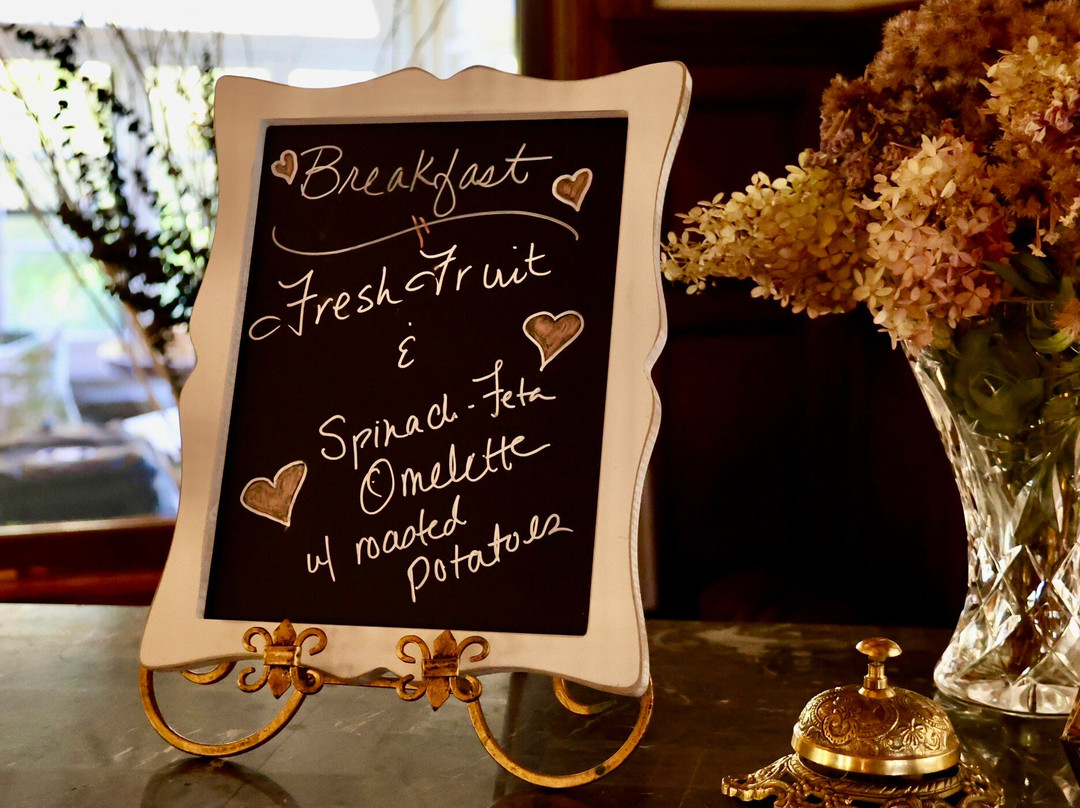 Breakfast
Fresh Fruit
&
Spinach-Feta
Omelette
w/ roasted
potatoes